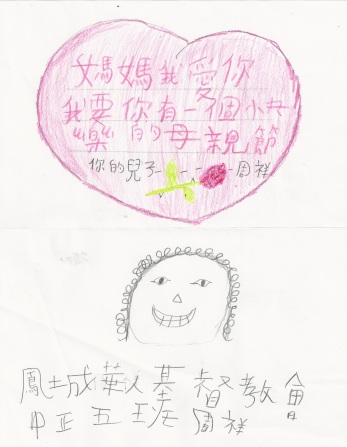 媽媽我愛你
我要你有一個快
樂的母親節
你的兒子---周祥
鳳城華人基督教會
中正五班 周祥